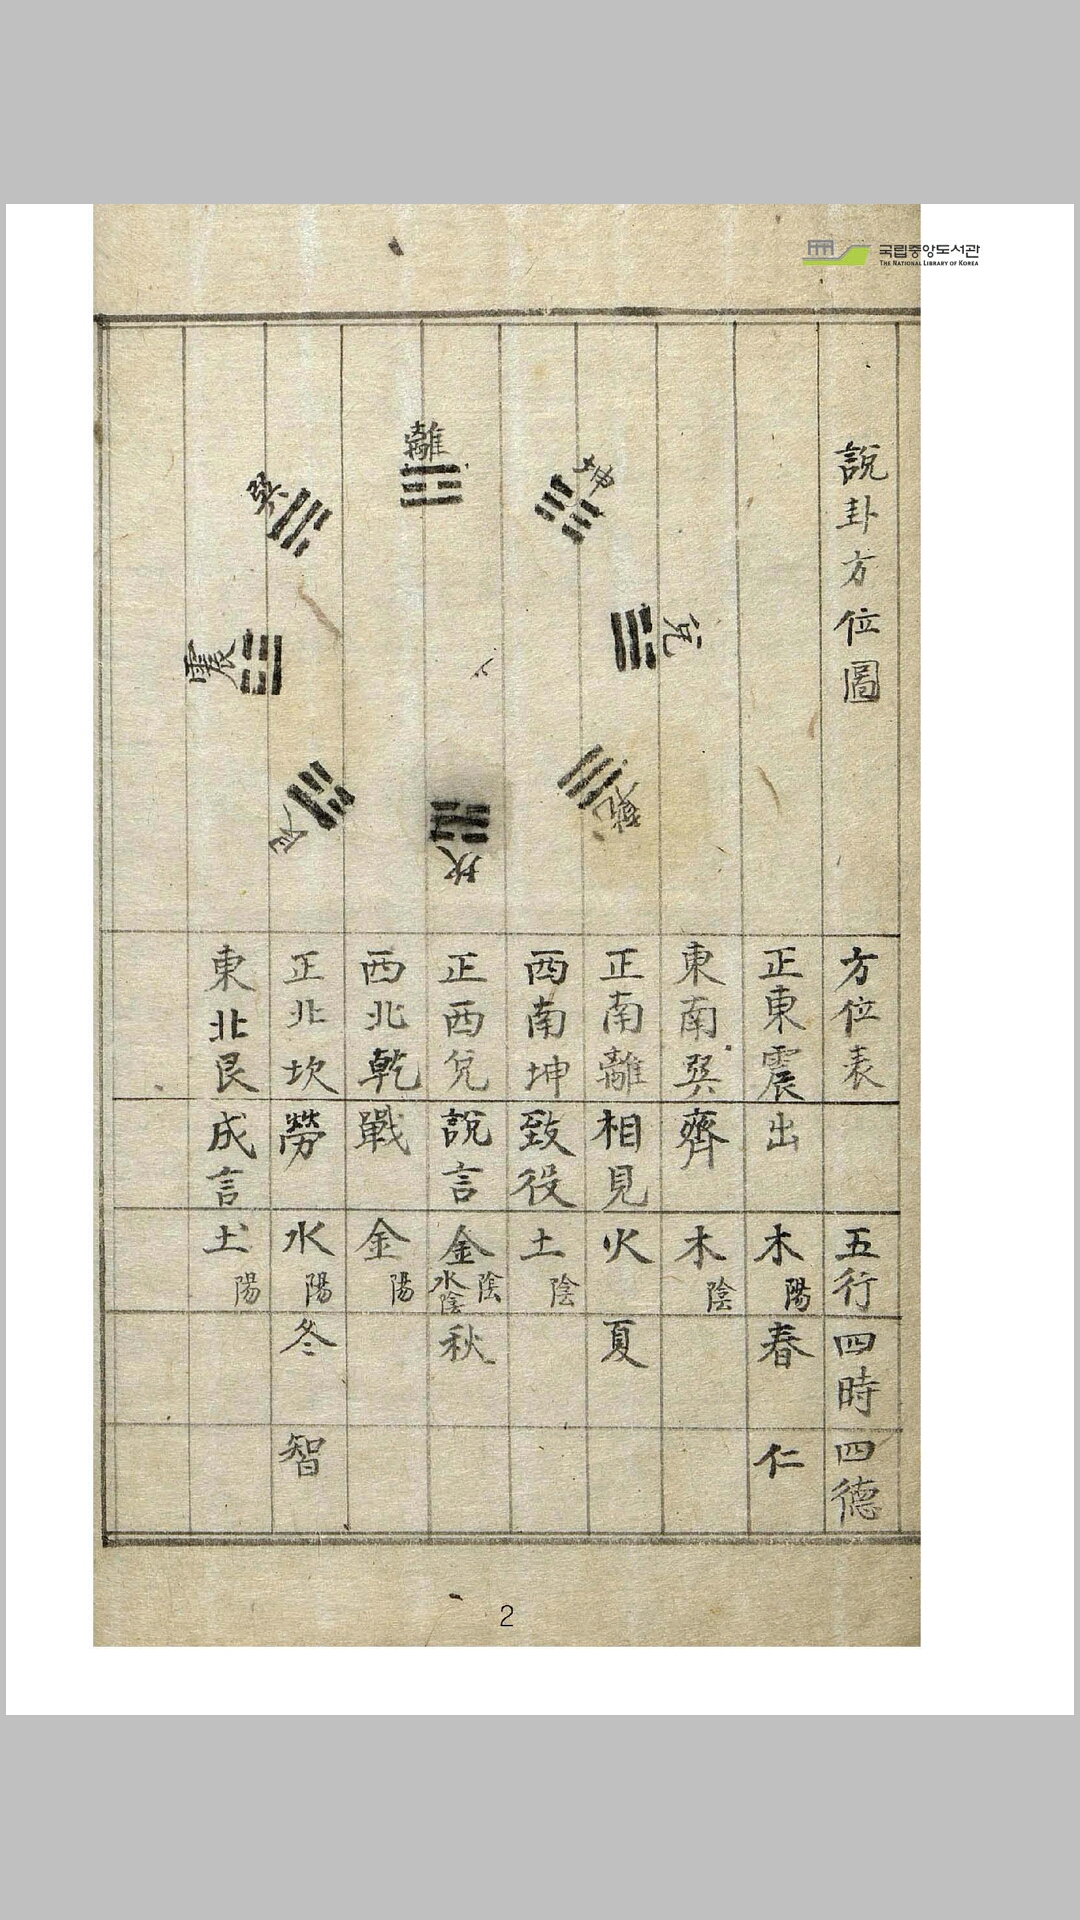 국립중앙도서관
THE NATIONAL LIBRARY OF KOREA
說卦方位圖
離
坤
兌
乾
坎
艮
震
巽
方位表
五行
四時
四德
正東震
出
木陽
春
仁
東南巽
齊
木陰
正南離
相見
火
夏
西南坤
致役
土陰
正西兌
說言
金陰水陰
秋
西北乾
戰
金陽
正北坎
勞
水陽
冬
智
東北艮
成言
土陽
2